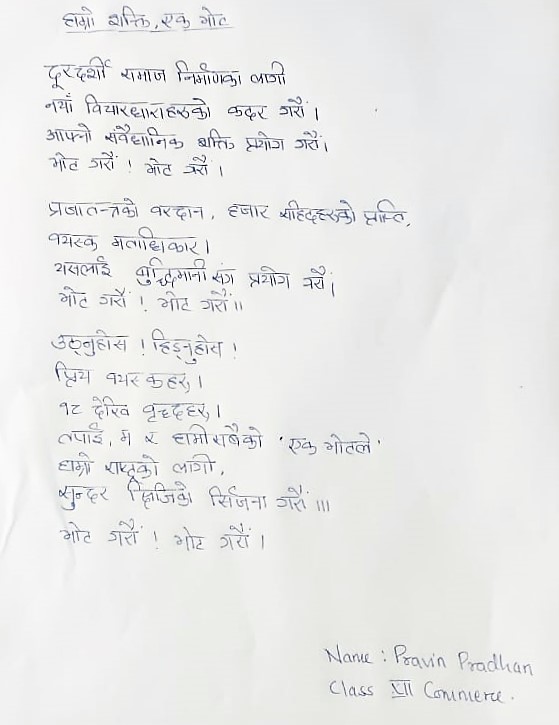 हाम्रो शक्ति, एक भोट
दूरदर्शी समाज निर्माणका लागी
नयाँ विचारधाराहरुको कदर गरौं।
आफ्नो संवैधानिक शक्ति प्रयोग गरौं।
भोट गरौं! भोट गरौं।
प्रजातन्त्रको वरदान, हजार सहिदहरुको प्राप्ति,
वयस्क मताधिकार।
यसलाई बुद्धिमानी संग प्रयोग गरौं।
भोट गरौं! भोट गरौं॥
उठ्नुहोस! हिड्नुहोस!
प्रिय वयस्कहरु,।
१८ देखि वृद्धहरु,।
तपाई, म र हामी सबैको 'एक भोटले'
हाम्रो राष्ट्रको लागी,
सुन्दर क्षितिजको सिर्जना गरौं।।।
भोट गरौं! भोट गरौं।
Name : Pravin Pradhan
Class XII Commerce.